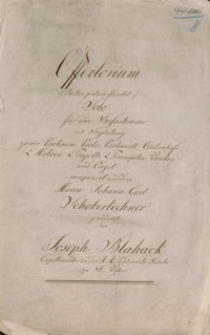 Offertorium
Solo
für eine Bassstimme
mit Begleitung
zweier Violinen, Viola, Violoncell, Contrabass
2 Hoboen, 2 Fagotte, 2 Trompeten, Pauken
und Orgel
componirt und dem
Herrn Johann Carl
Schoberlechner
gewidmet
von
Joseph Blahack
Capellmeister an der
zu St. Peter